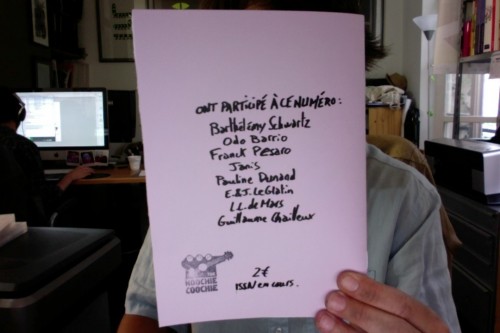 ONT PARTICIPÉ À CE NUMÉRO :
Barthélémy Schwartz
Odo Barrio
Franck Pesaro
Janis
Pauline Dunand
E.&J. LeGlatin
L.L. de Mars
Guillaume Chailleux
HOOCHIE
COOCHIE
2€
ISSN en cours.